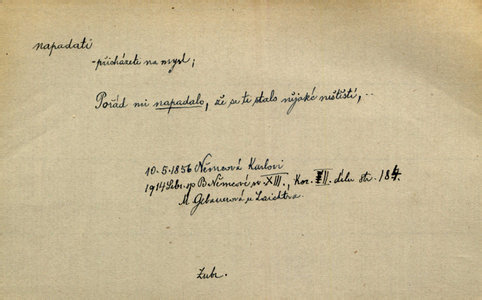 napadati
-přicházeti na mysl;
Pořád mi napadalo, že se ti stalo nějaké neštěstí,..
10.5.1856 Němcová Karlovi
1914 Sebr. sp B. Němcové sv. XIII., Kor. II. dílu str. 184.
M. Gebauerová u Laichtra
Zubr.